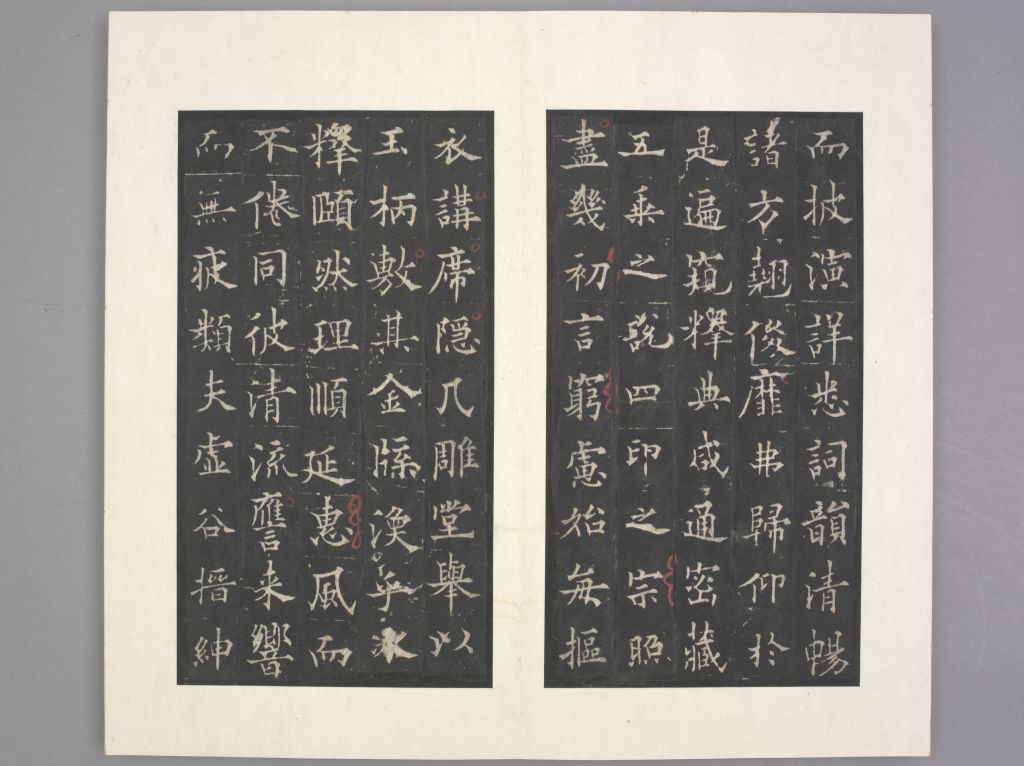 而披演詳悉詞韻清暢
諸方翹俊靡弗歸仰於
是遍窺釋典咸通密藏
五乘之說四印之宗照
盡幾初言窮慮始每摳
衣講席隱几雕堂舉以
玉柄敷其金牒渙乎冰
釋頤然理順延惠風而
不倦同彼清流譍来響
而無疲類夫虛谷搢紳